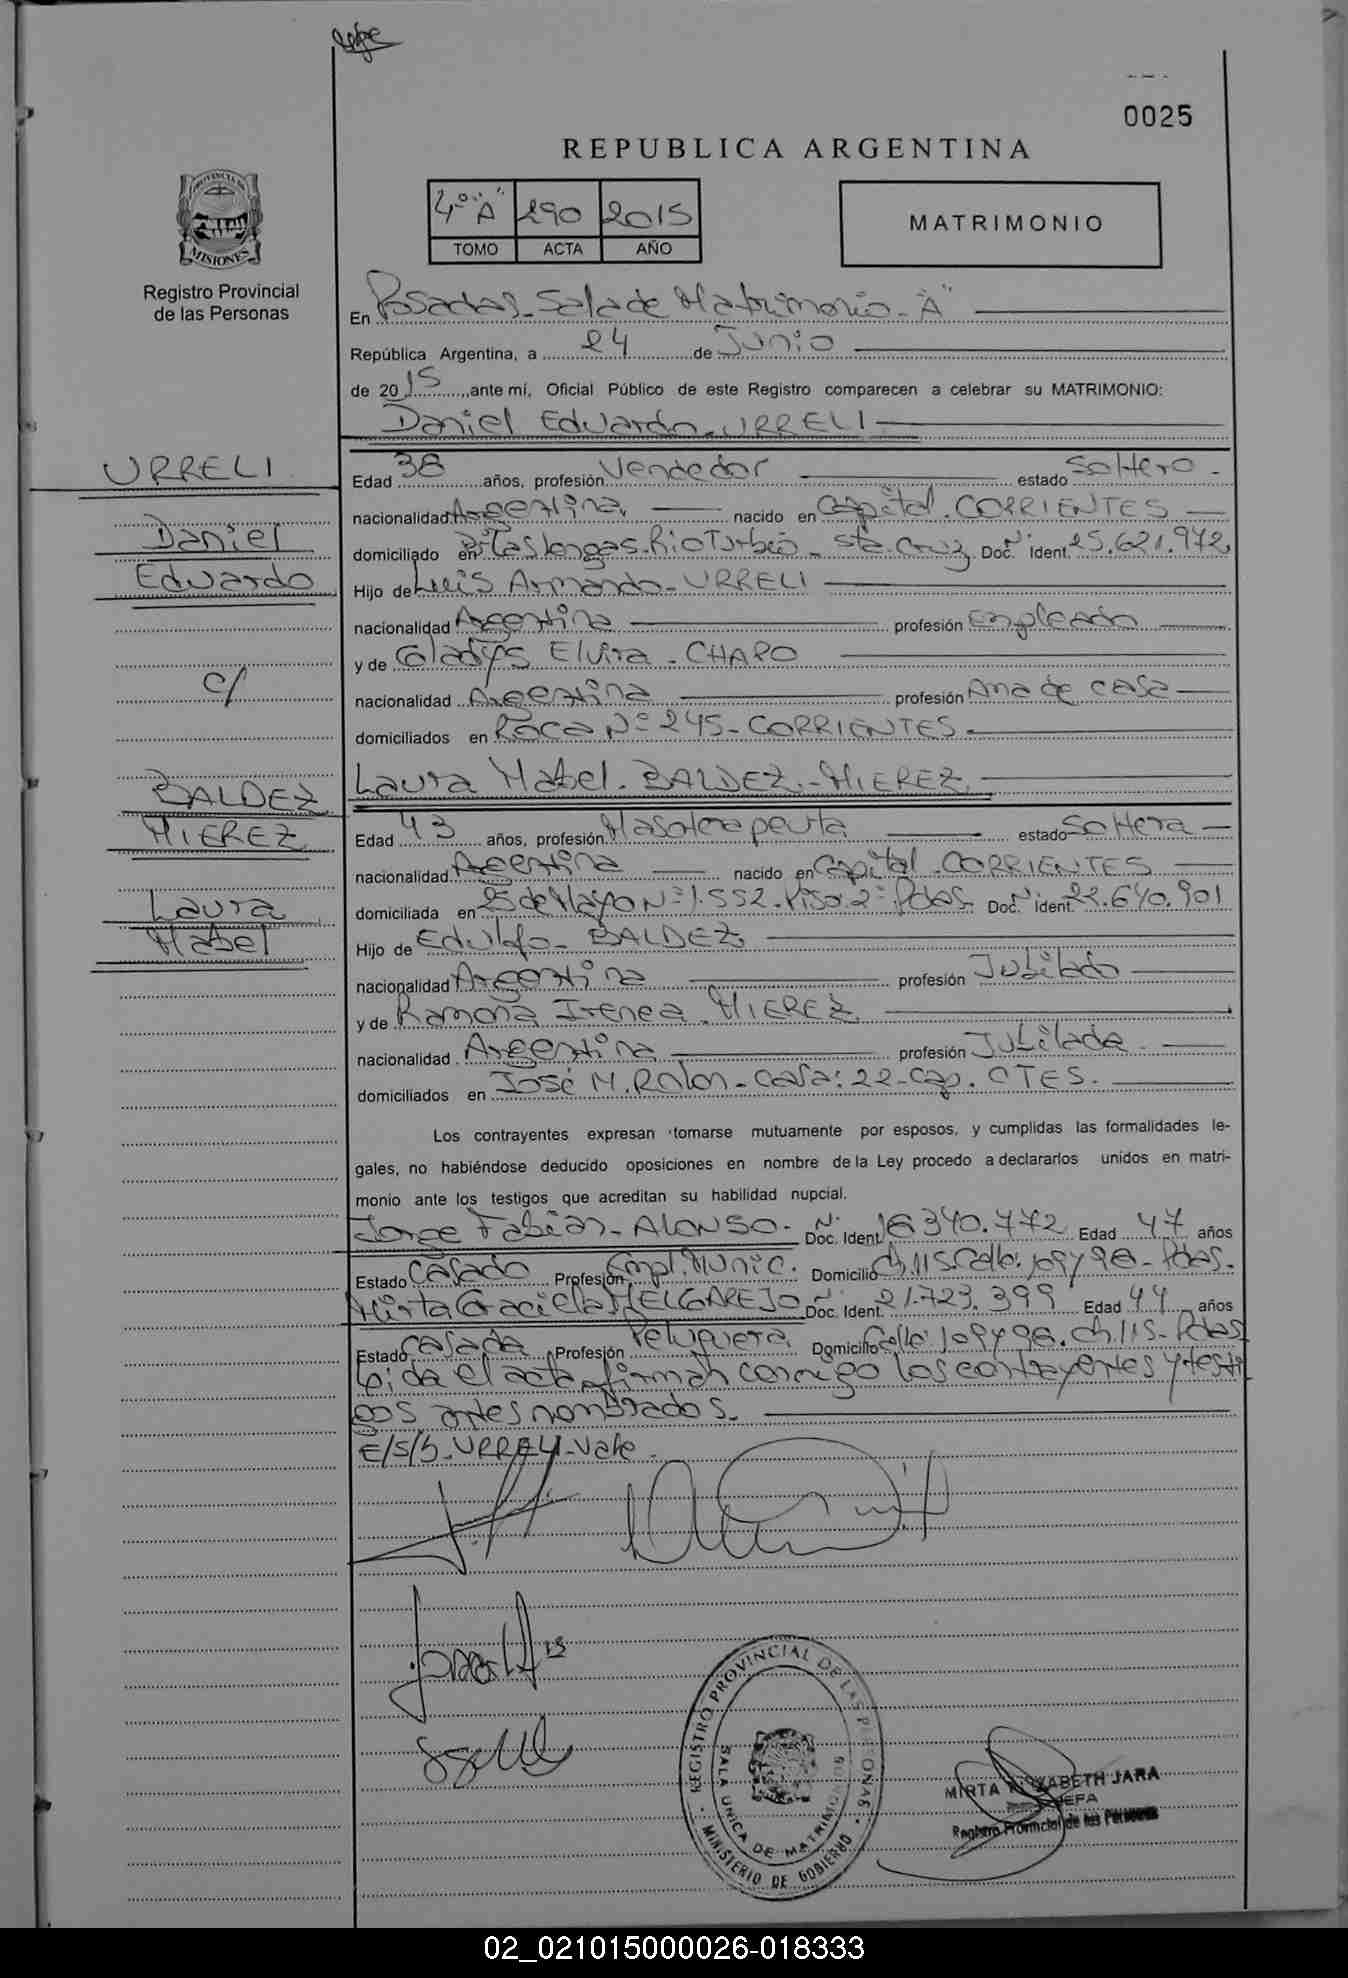 0025
REPUBLICA ARGENTINA
4º "A" 290 2015
TOMO ACTA AÑO
MATRIMONIO
PROVINCIA DE MISIONES
Registro Provincial
de las Personas
En Posadas - Sala de Matrimonio - "A"
República Argentina, a 24 de Junio
de 2015, ante mí, Oficial Público de este Registro comparecen a celebrar su MATRIMONIO:
Daniel Eduardo - URRELI
URRELI
Daniel
Eduardo
c/
BALDEZ
MIEREZ
Laura
Mabel
Edad 38 años, profesión Vendedor estado Soltero -
nacionalidad Argentina nacido en Capital - CORRIENTES
domiciliado en Rio Turbio - Sta. Cruz Doc. Nº Ident. 25.621.972
Hijo de Luis Armando - URRELI
nacionalidad Argentina profesión Empleado
y de Gladys Elvira - CHAPO
nacionalidad Argentina profesión Ama de casa
domiciliados en Roca Nº 245 - CORRIENTES -
Laura Mabel - BALDEZ - MIEREZ
Edad 43 años, profesión Masoterapeuta estado Soltera
nacionalidad Argentina nacido en Capital - CORRIENTES
domiciliada en 25 de Mayo Nº 1.552 - Piso 2º - Pdas. Doc. Nº Ident. 22.640.901
Hijo de Edulfo - BALDEZ
nacionalidad Argentina profesión Jubilado
y de Ramona Irenea - MIEREZ
nacionalidad Argentina profesión Jubilada -
domiciliados en José M. Rolon - Casa: 22 - Cap. CTES.
Los contrayentes expresan tomarse mutuamente por esposos, y cumplidas las formalidades le-
gales, no habiéndose deducido oposiciones en nombre de la Ley procedo a declararlos unidos en matri-
monio ante los testigos que acreditan su habilidad nupcial.
Jorge Fabián - ALONSO - Doc. Nº Ident. 16.340.772 Edad 47 años
Estado Casado Profesión Empl. Munic. Domicilio Ch. 115 - Calle: 109 y 98 - Pdas.
Mirta Graciela MELGAREJO Doc. Nº Ident. 21.723.399 Edad 44 años
Estado Casada Profesión Peluquera Domicilio Calle: 109 y 98 - Ch. 115 - Pdas
Leida el acta, firman conmigo los contrayentes y testi
gos antes nombrados -
E/s/b - URRELI - Vale -
REGISTRO PROVINCIAL DE LAS PERSONAS
SALA UNICA DE MATRIMONIOS
MINISTERIO DE GOBIERNO
MIRTA ELIZABETH JARA
JEFA
Registro Provincial de las Personas
02_021015000026-018333